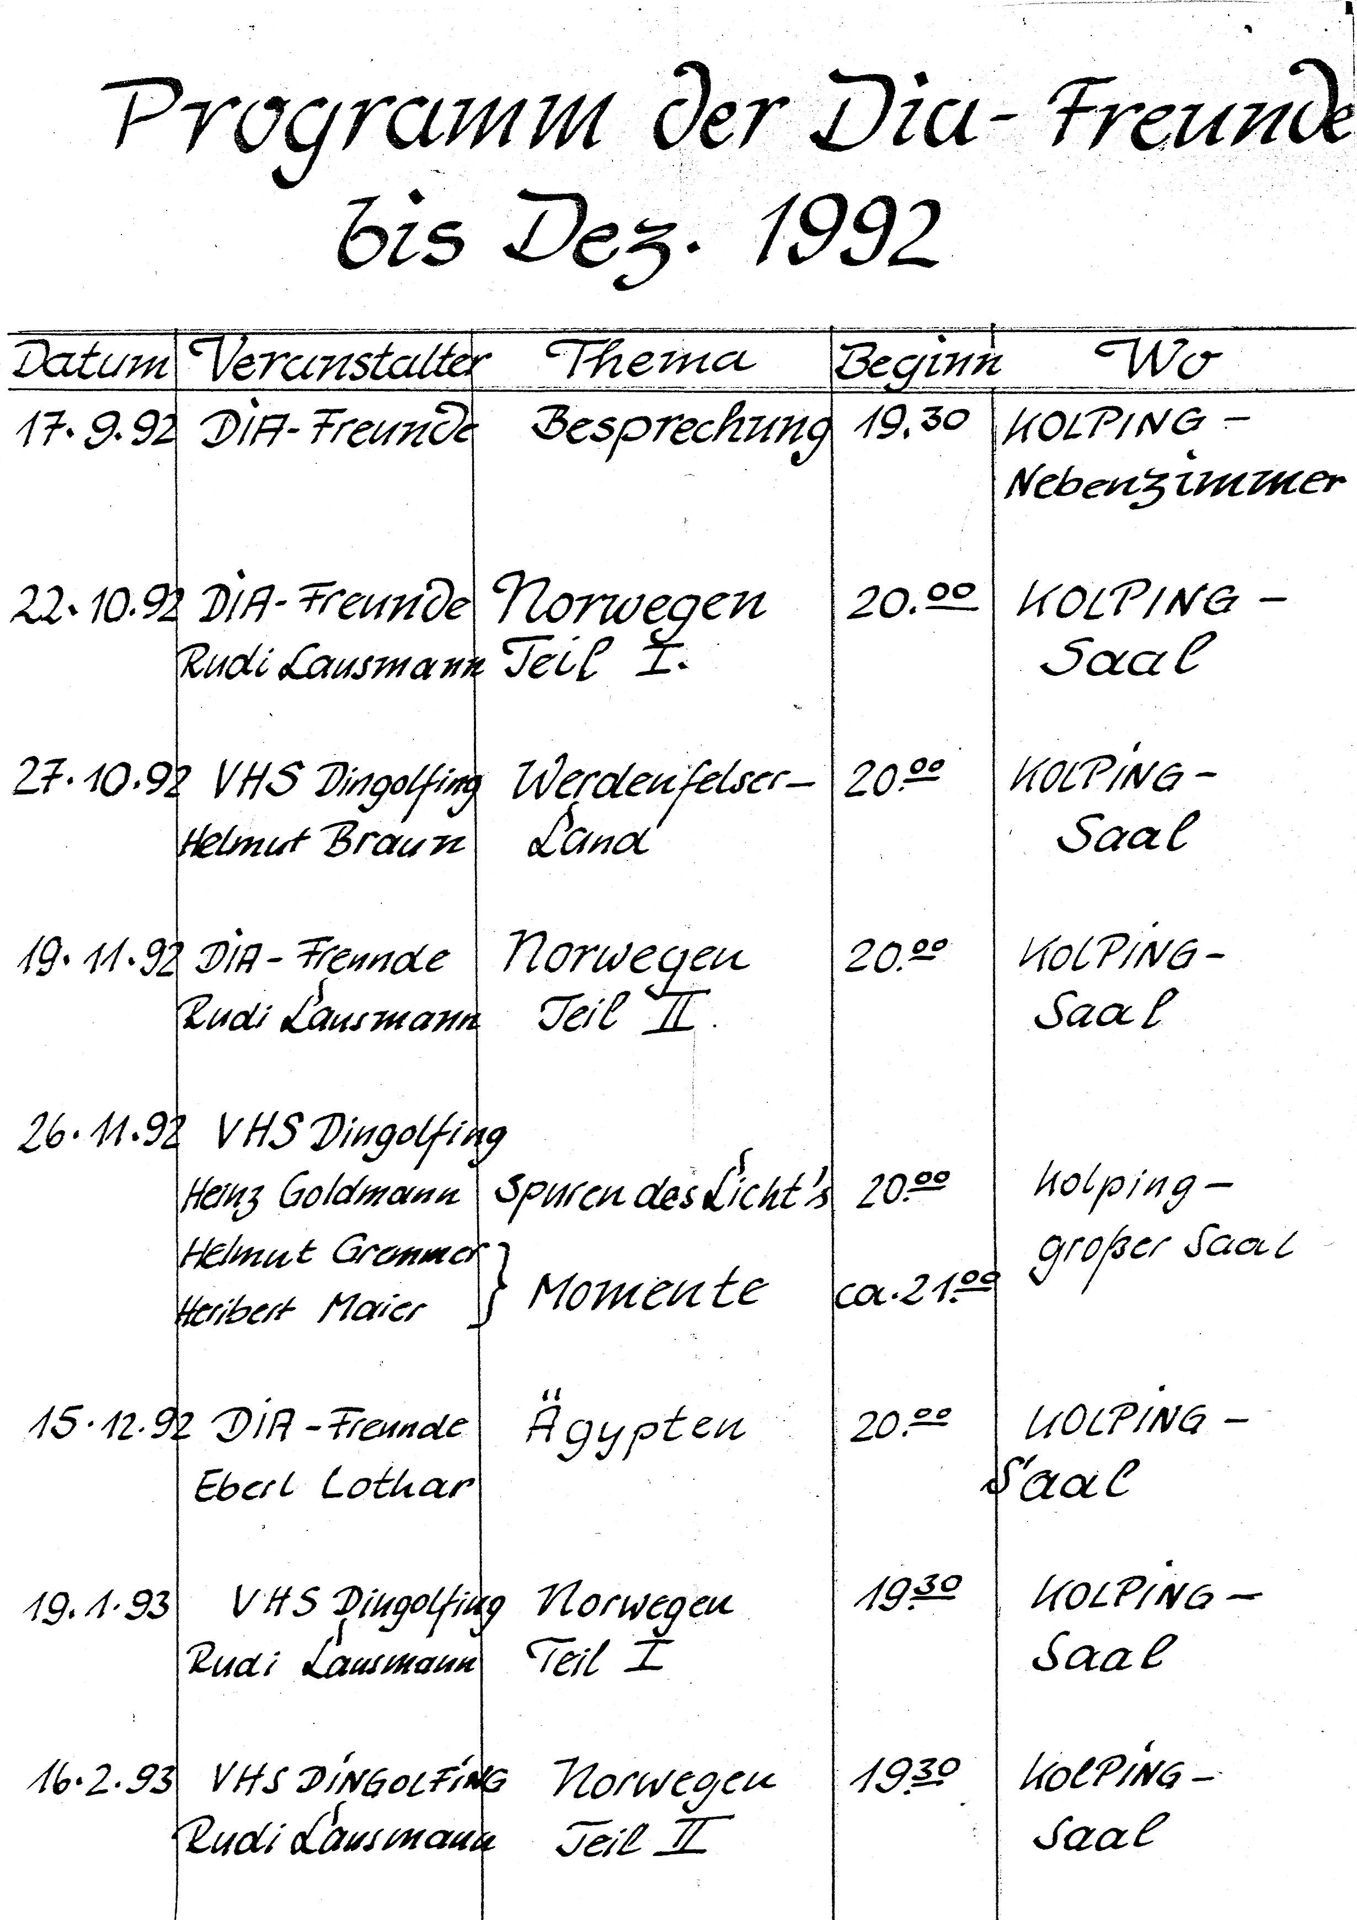 Programm der Dia-Freunde
bis Dez. 1992
Datum Veranstalter Thema Beginn Wo
17.9.92 DIA-Freunde Besprechung 19.30 KOLPING-
Nebenzimmer
22.10.92 DIA-Freunde Norwegen 20.00 KOLPING-
Rudi Lausmann Teil I. Saal
27.10.92 VHS Dingolfing Werdenfelser- 20.00 KOLPING-
Helmut Braun Land Saal
19.11.92 DIA-Freunde Norwegen 20.00 KOLPING-
Rudi Lausmann Teil II. Saal
26.11.92 VHS Dingolfing
Heinz Goldmann Spuren des Licht's 20.00 Kolping-
Helmut Gremmer großer Saal
Heribert Maier } Momente ca. 21.00
15.12.92 DIA-Freunde Ägypten 20.00 KOLPING-
Eberl Lothar Saal
19.1.93 VHS Dingolfing Norwegen 19.30 KOLPING-
Rudi Lausmann Teil I Saal
16.2.93 VHS DINGOLFING Norwegen 19.30 KOLPING-
Rudi Lausmann Teil II Saal